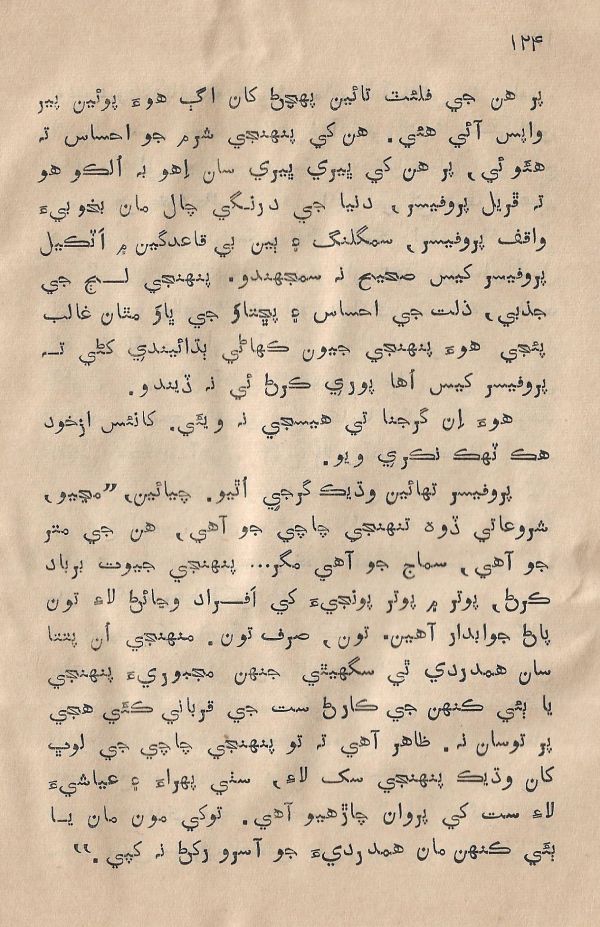 ۱۲۴
پر هن جي فلئٽ تائين پهچڻ کان اڳ هوءَ پوئين پير
واپس آئي هئي. هن کي پنهنجي شرم جو احساس ته
هئو ئي، پر هن کي ڀيري ڀيري سان اِهو به اُلڪو هو
ته ڦريل پروفيسر، دنيا جي درنگي چال مان بخوبيءَ
واقف پروفيسر، سمگلنگ ۽ ٻين بي قاعدگين ۾ اَٽڪيل
پروفيسر کيس صحيح نہ سمجهندو. پنهنجي لڄ جي
جذبي، ذلت جي احساس ۽ پڇتاوَ جي ڀاوَ مٿان غالب
پئجي هوءَ پنهنجي جيون ڪهاڻي ٻڌائيندي کڻي تہ
پروفيسر کيس اُها پوري ڪرڻ ئي نہ ڏيندو.
هوءَ اِن گرجنا تي هيسجي نہ ويئي. کانئس ازخود
هڪ ٽهڪ نڪري ويو.
پروفيسر تهائين وڌيڪ گرجي اُٿيو. چيائين، ”مڃيو،
شروعاتي ڏوهه تنهنجي چاچي جو آهي، هن جي متر
جو آهي، سماج جو آهي مگر... پنهنجي جيوت برباد
ڪرڻ، پوتر ۾ پوتر پونجيءَ کي اَفراد وڃائڻ لاءِ تون
پاڻ جوابدار آهين. تون، صرف تون. منهنجي اُن پتتا
سان همدردي ٿي سگهيٿي جنهن مجبوريءَ پنهنجي
يا ٻئي ڪنهن جي ڪارڻ ست جي قرباني ڪئي هجي
پر توسان نہ. ظاهر آهي تہ تو پنهنجي چاچي جي لوڀ
کان وڌيڪ پنهنجي سک لاءِ، سٺي پهراءَ ۽ عياشيءَ
لاءِ ست کي پروان چاڙهيو آهي. توکي مون مان يا
ٻئي ڪنهن مان همدرديءَ جو آسرو رکڻ نہ کپي.“